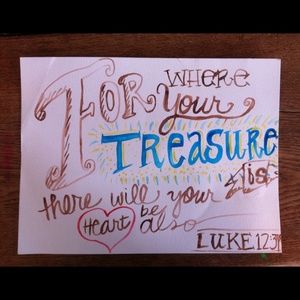 FOR WHERE
your
TREASURE
is
there will your
Heart be
also
LUKE 12:34